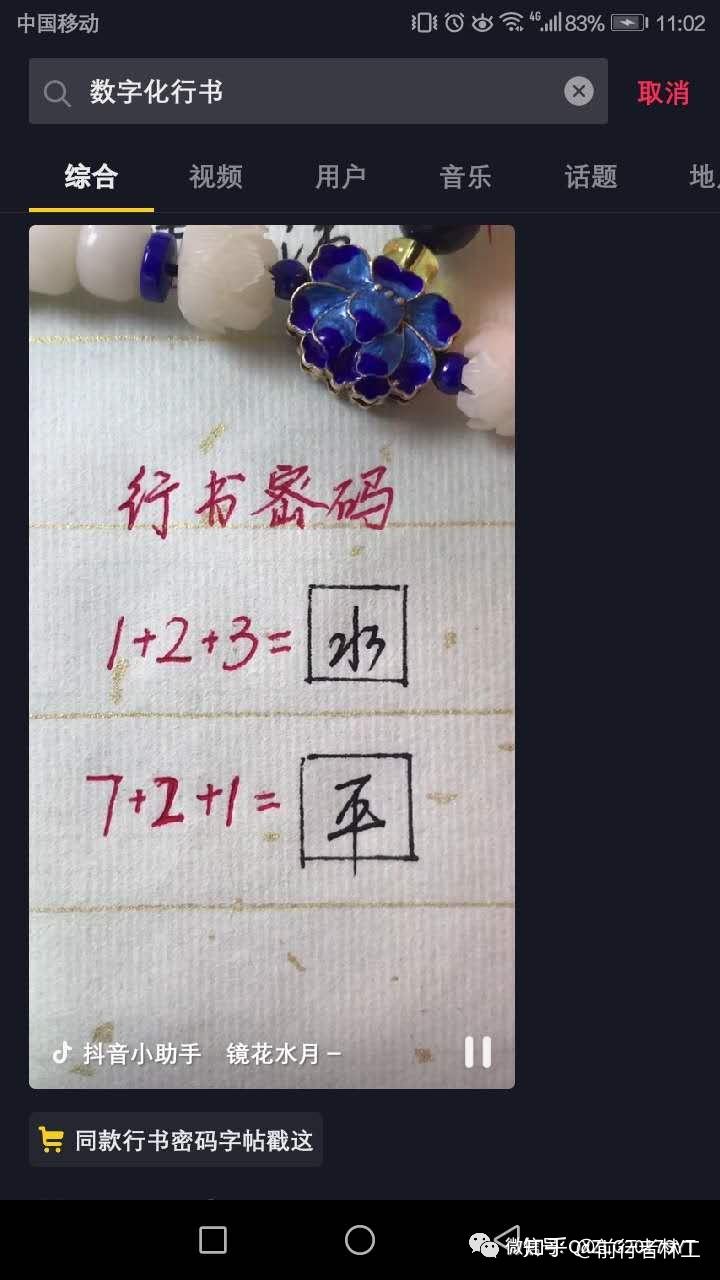 中国移动 4G 83% 11:02
数字化行书 取消
综合 视频 用户 音乐 话题
行书密码
1+2+3=水
7+2+1=平
抖音小助手 镜花水月
同款行书密码字帖戳这
知乎 @前行者林工